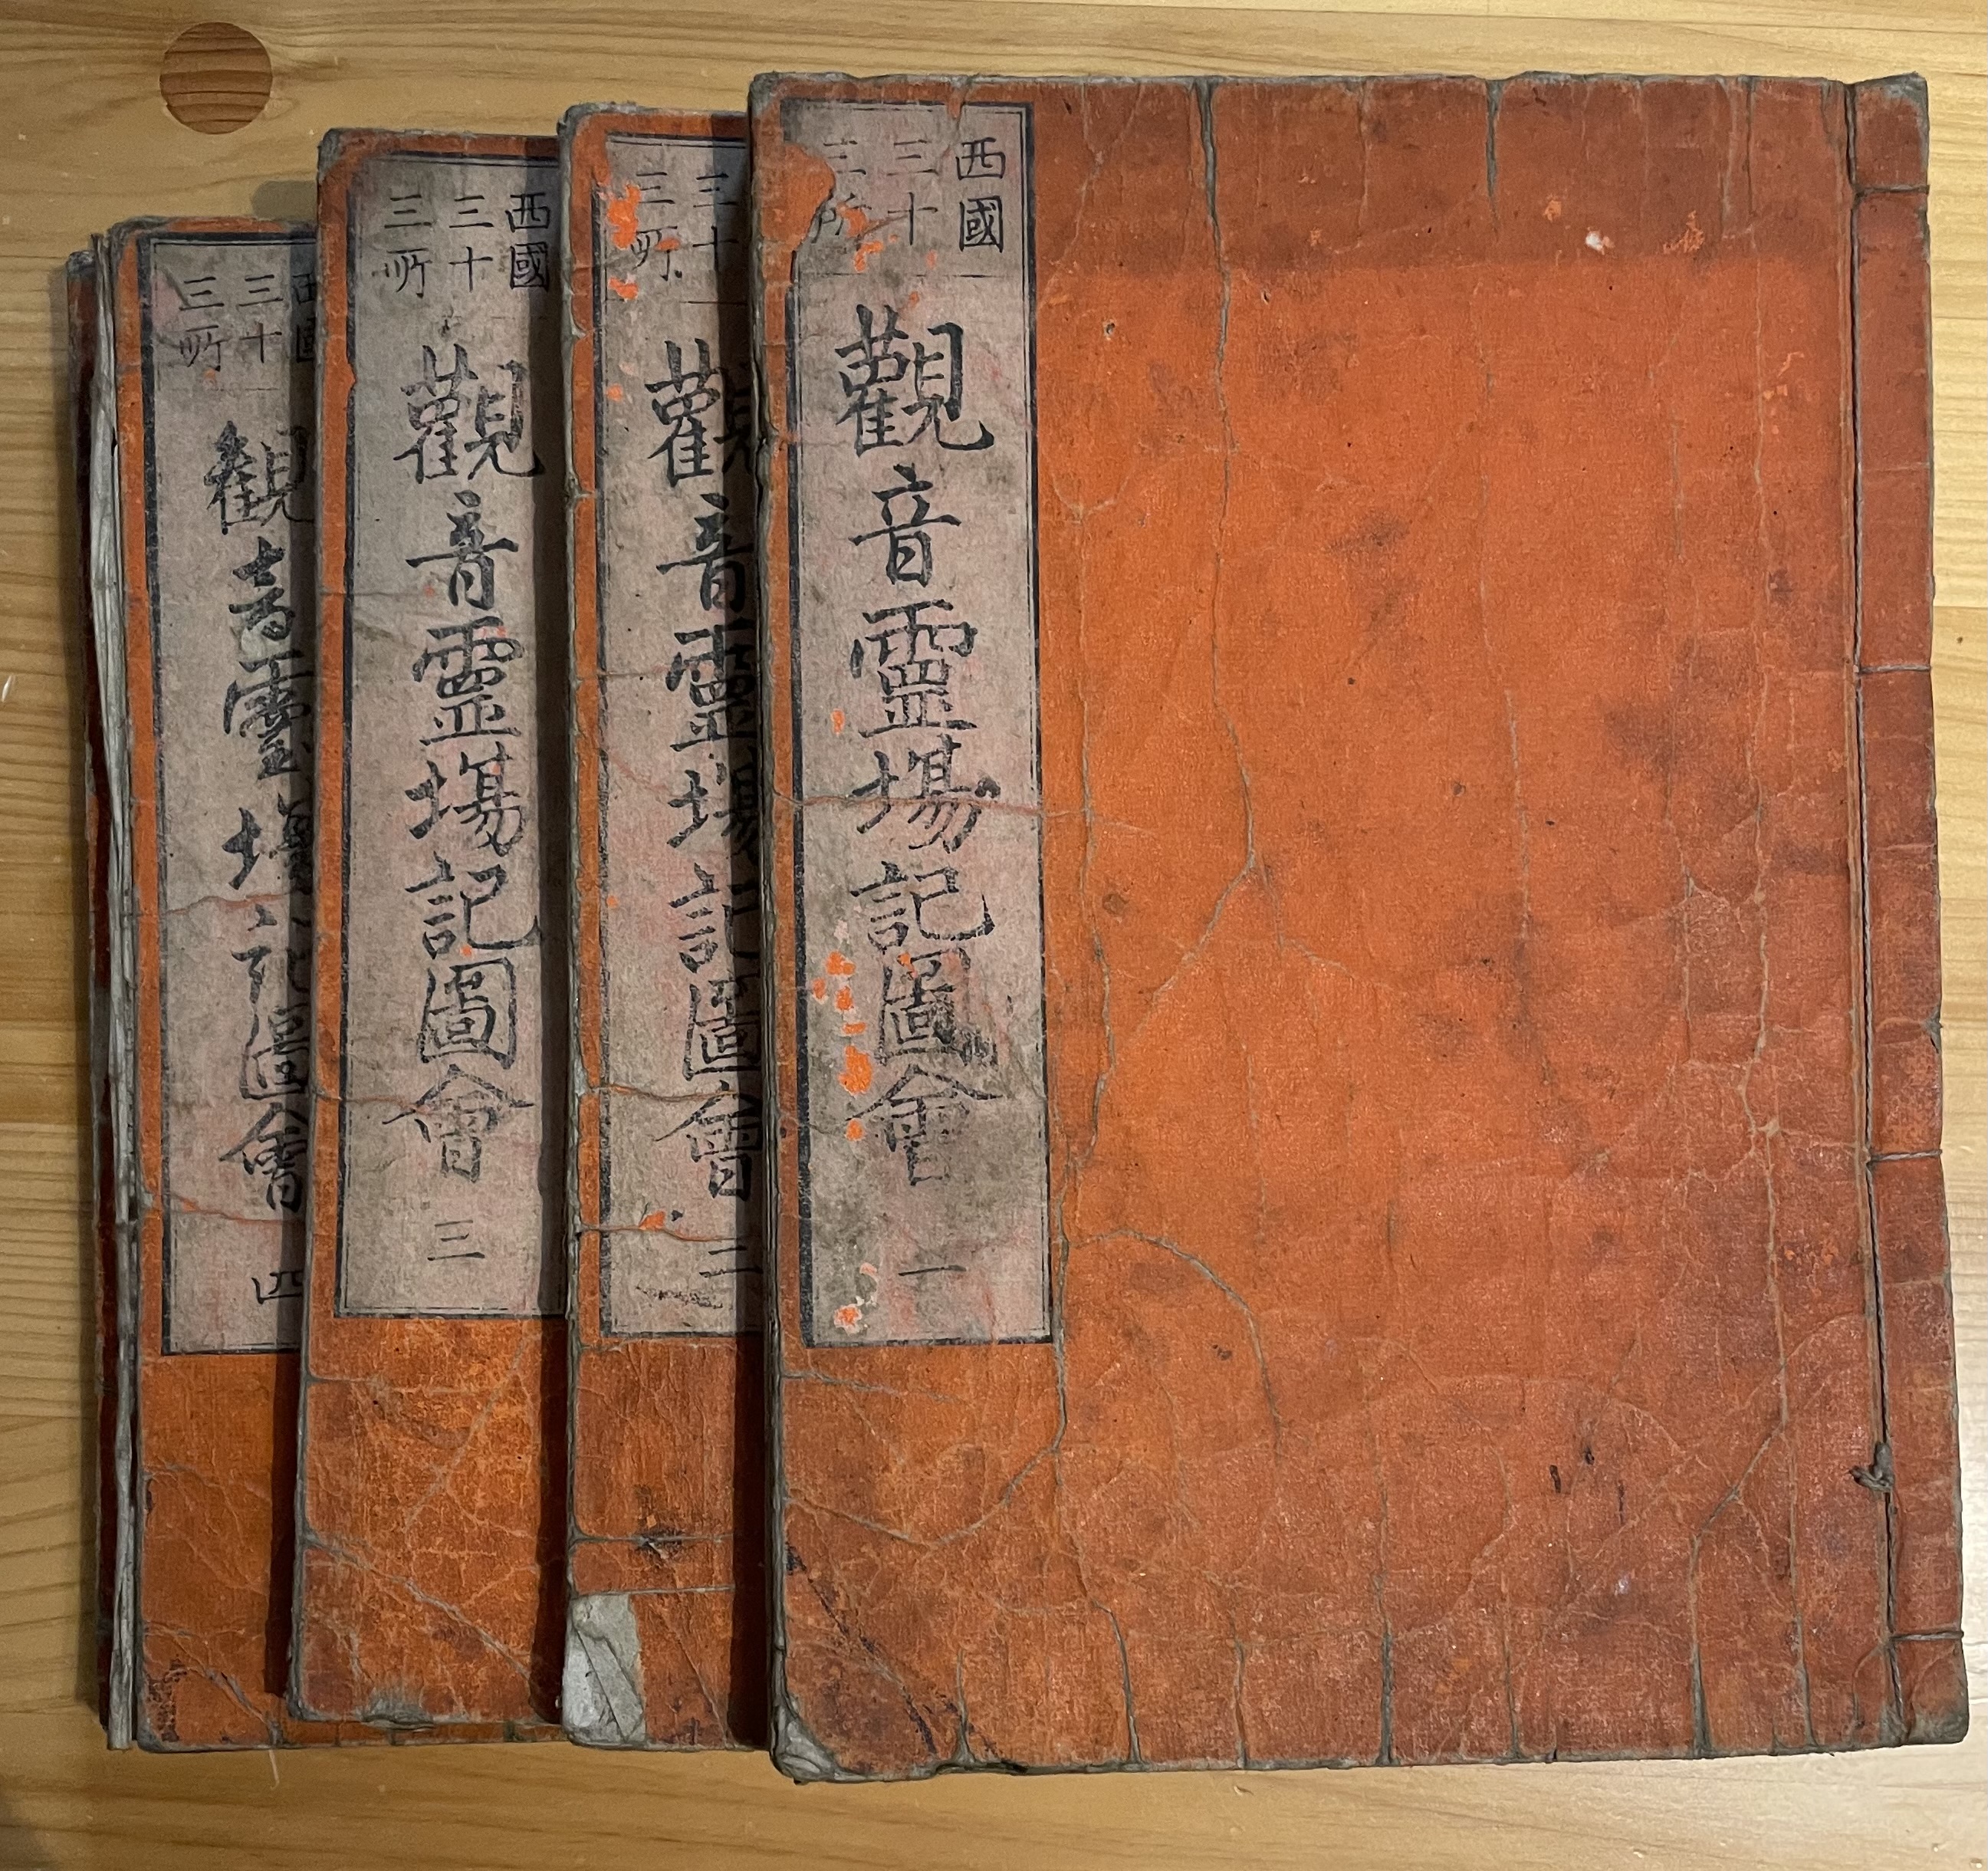 西國
三十
三所
觀音靈場記圖會
一
三十
三所
觀音靈場記圖會
二
西國
三十
三所
觀音靈場記圖會
三
西國
三十
三所
観音靈場記圖會
四